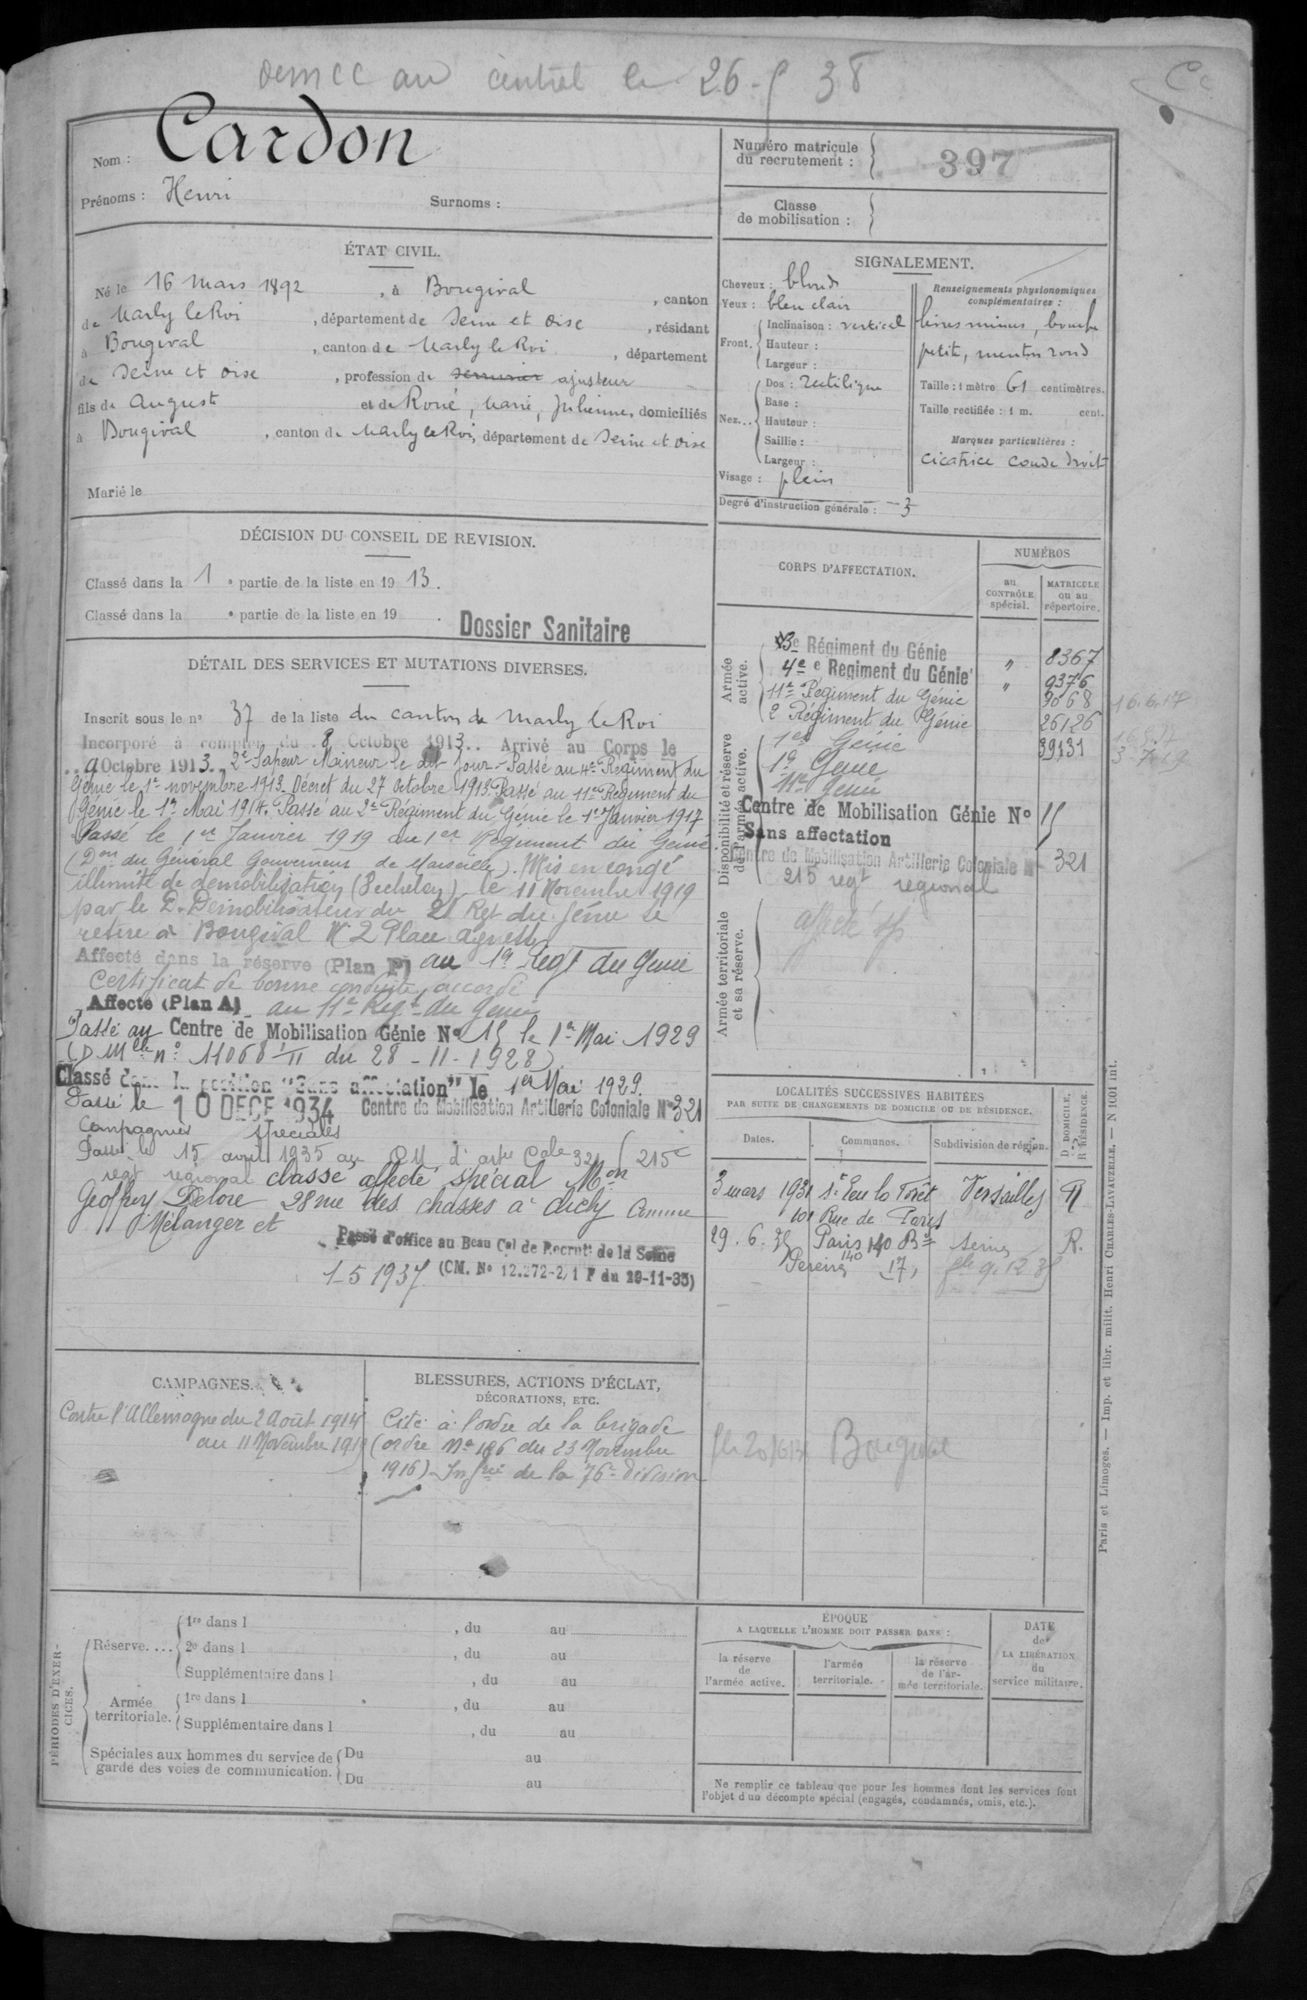 au central le 26-5 38
Cc
Nom : Cardon
Prénoms : Henri Surnoms :
Numéro matricule
du recrutement : 397
Classe
de mobilisation :
ÉTAT CIVIL.
Né le 16 Mars 1892, à Bougival, canton
de Marly le Roi, département de Seine et Oise, résidant
à Bougival, canton de Marly le Roi, département
de Seine et Oise, profession de serrurier ajusteur
fils de Auguste et de Roué, Marie, Julienne, domiciliés
à Bougival, canton de Marly le Roi, département de Seine et Oise
Marié le
SIGNALEMENT.
Cheveux : blonds
Yeux : bleu clair
Front. Inclinaison : vertical
Hauteur :
Largeur :
Nez... Dos : rectiligne
Base :
Hauteur :
Saillie :
Largeur :
Visage : plein
Degré d'instruction générale : 3
Renseignements physionomiques
complémentaires :
lèvres minces, bouche
petite, menton rond
Taille : 1 mètre 61 centimètres.
Taille rectifiée : 1 m. cent.
Marques particulières :
cicatrice coude droit
DÉCISION DU CONSEIL DE REVISION.
Classé dans la 1e partie de la liste en 1913.
Classé dans la e partie de la liste en 19 .
Dossier Sanitaire
DÉTAIL DES SERVICES ET MUTATIONS DIVERSES.
Inscrit sous le no 37 de la liste du canton de Marly le Roi
Incorporé à compter du 8 Octobre 1913. Arrivé au Corps le
9 Octobre 1913. 2e Sapeur Mineur le dit jour. Passé au 4e Régiment du
Génie le 1er novembre 1913. Décret du 27 Octobre 1913. Passé au 11e Régiment du
Génie le 1er Mai 1914. Passé au 2e Régiment du Génie le 1er Janvier 1917
Passé le 1er Janvier 1919 au 1er Régiment du Génie
(Don du Général Gouverneur de Marseille). Mis en congé
illimité de démobilisation (Echelon) le 11 Novembre 1919
par le D. Démobilisateur du 21 Rgt du Génie se
retire à Bougival No 2 Place
Affecté dans la réserve (Plan P) au 1er Regt du Génie
Certificat de bonne conduite accordé
Affecté (Plan A) au 11e Regt du Génie
Passé au Centre de Mobilisation Génie No 15 le 1er Mai 1929
(D Mlle no 11068 II du 28-11-1928)
Classé dans la position "Sans affectation" le 1er Mai 1929.
Passé le 10 DECE 1934 Centre de Mobilisation Artillerie Coloniale No 321
Compagnies spéciales
Passé le 15 avril 1935 au CM d'artie Cole 321 (215e
regt régional classé affecté spécial Mon
Geoffroy Delore 28 rue des chasses à Clichy comme
Mélanger et
Passé d'office au Beau Cal de Recrutt de la Seine
1-5 1937 (CM. No 12.272-2/1 F du 29-11-35)
CORPS D'AFFECTATION.
NUMÉROS
au
CONTRÔLE
spécial.
MATRICULE
ou au
répertoire.
Armée
active.
3e Régiment du Génie " 8367
4e e Régiment du Génie " 9376
11e Régiment du Génie 3068 16.6.17
2 Régiment du Génie 26126
Disponibilité et réserve
de l'armée active.
1er Génie 39131
1er Génie
11e Génie
Centre de Mobilisation Génie No 15
Sans affectation
Centre de Mobilisation Artillerie Coloniale No 321
215 regt régional
Armée territoriale
et sa réserve.
affecté sp
LOCALITÉS SUCCESSIVES HABITÉES
PAR SUITE DE CHANGEMENTS DE DOMICILE OU DE RÉSIDENCE.
D. DOMICILE.
R. RÉSIDENCE.
Dates. Communes. Subdivision de région.
3 mars 1931 St Leu la Forêt Versailles R
101 Rue de Paris
29.6.35 Paris 140 Bd Seine R.
Pereire 140 17,
Bougival
CAMPAGNES.
Contre l'Allemagne du 2 Août 1914
au 11 Novembre 1918
BLESSURES, ACTIONS D'ÉCLAT,
DÉCORATIONS, ETC.
Cité à l'ordre de la brigade
(ordre No 186 du 23 Novembre
1916) Infrie de la 76e division
PÉRIODES D'EXER-
CICES.
Réserve.... 1re dans l , du au
2e dans l , du au
Supplémentaire dans l , du au
Armée
territoriale. 1re dans l , du au
Supplémentaire dans l , du au
Spéciales aux hommes du service de
garde des voies de communication. Du au
Du au
ÉPOQUE
A LAQUELLE L'HOMME DOIT PASSER DANS :
la réserve
de
l'armée active.
l'armée
territoriale.
la réserve
de l'ar-
mée territoriale.
DATE
de
LA LIBÉRATION
du
service militaire.
Ne remplir ce tableau que pour les hommes dont les services font
l'objet d'un décompte spécial (engagés, condamnés, omis, etc.).
Paris et Limoges. — Imp. et libr. milit. Henri CHARLES-LAVAUZELLE. — N 1001 int.